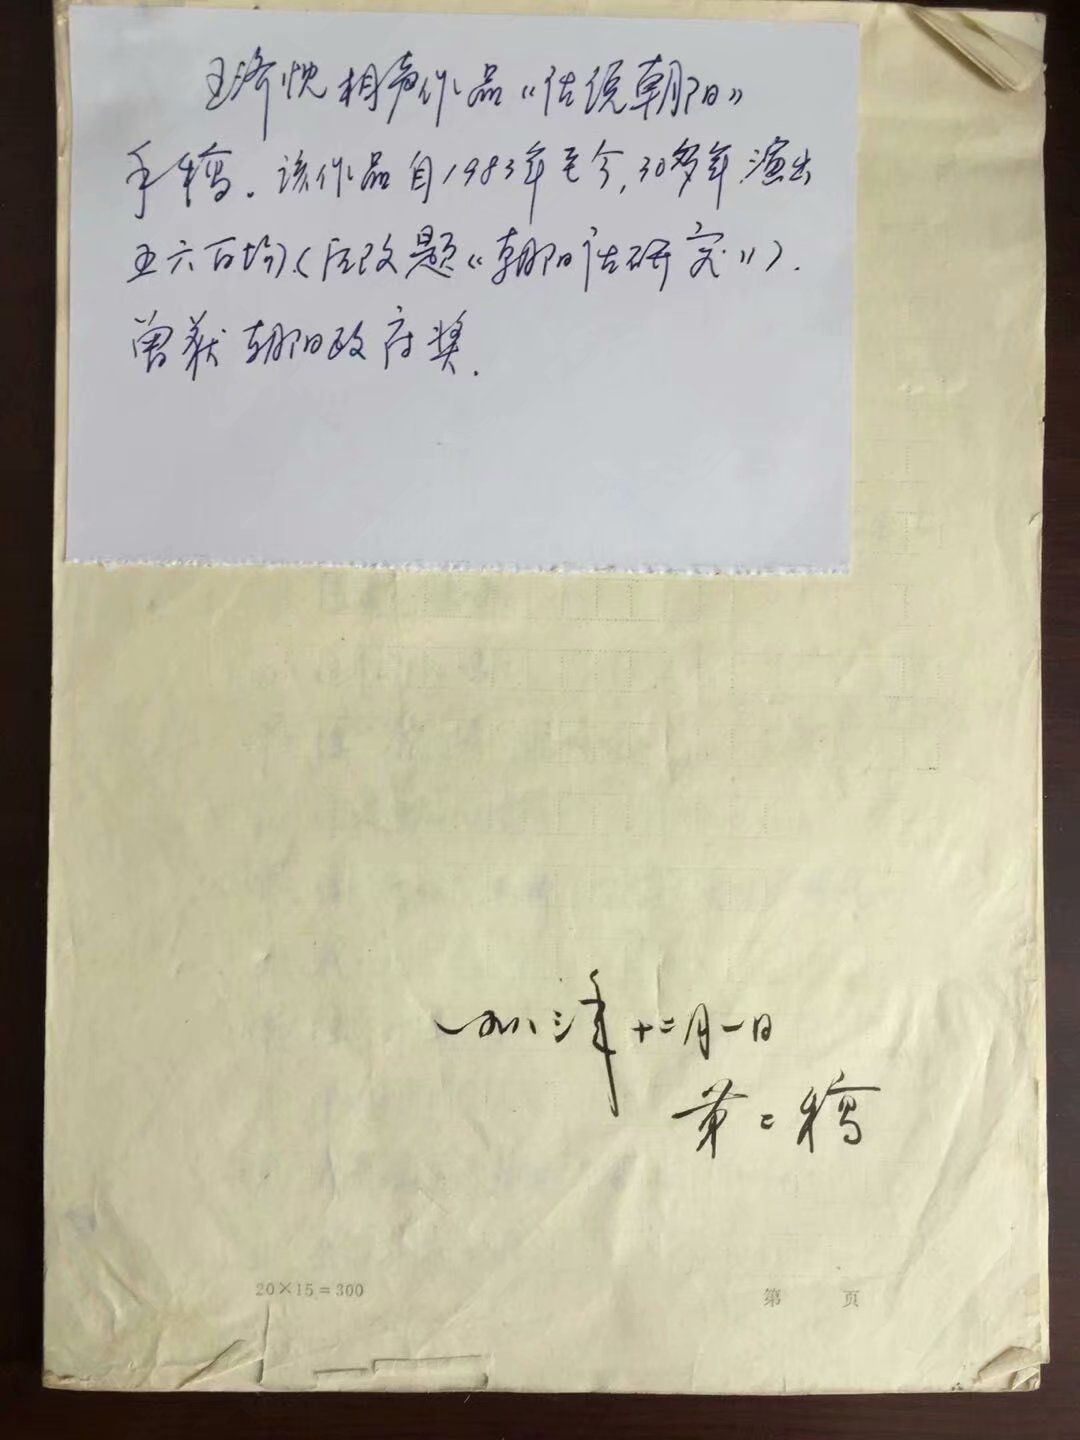 王济忱相声作品《话说朝阳》
手稿。该作品自1983年至今,30多年演出
五六百场(后改题《朝阳话研究》).
曾获朝阳政府奖.
一九八三年十二月一日
第二稿
20×15=300 第 页